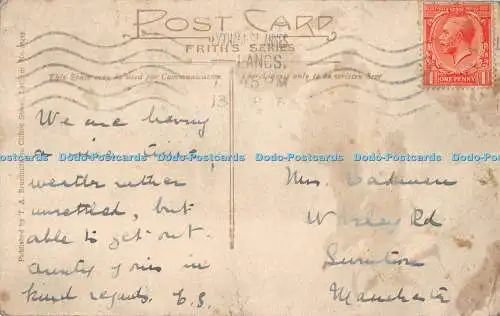 POST CARD
LYTHAM ST ANNES
FRITH'S SERIES
LANCS.
This Space may be used for Communication
The Address only to be written here
ONE PENNY
We are having
a nice time,
weather rather
unsettled, but
able to get out.
Aunty joins in
kind regards. E.S.
Mrs.
Rd
Manchester
Dodo-Postcards Dodo-Postcards Dodo-Postcards Dodo-Postcards Dodo-Postcards
Published by T. A.